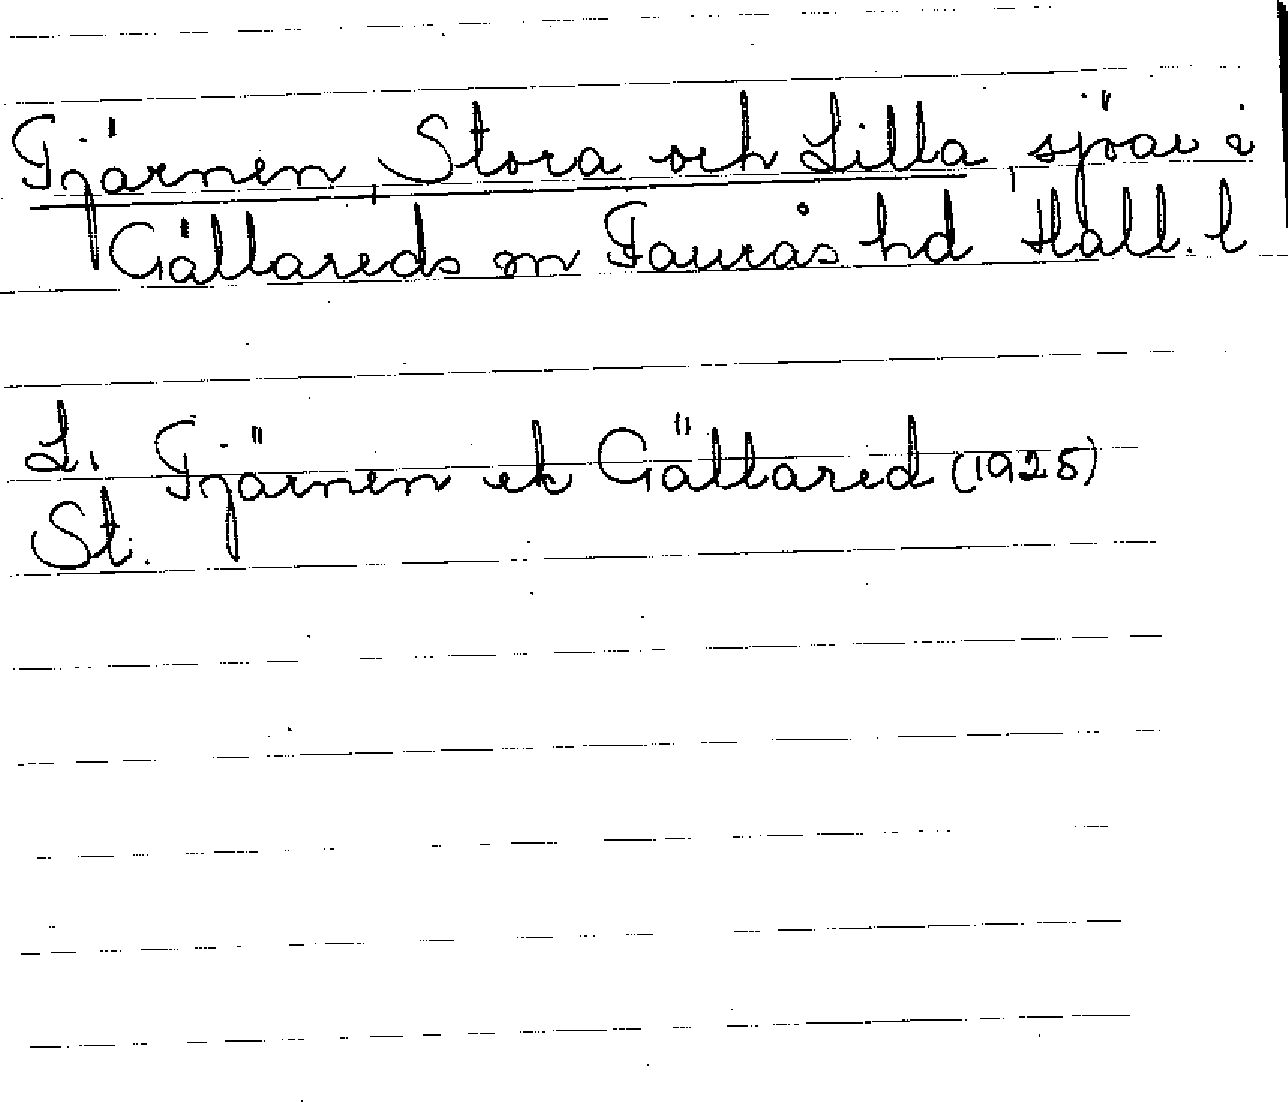 Tjärnen, Stora och Lilla, sjöar i
Gällareds sn Faurås hd Hall. l
L.
Tjärnen ek Gällared (1925)
St.